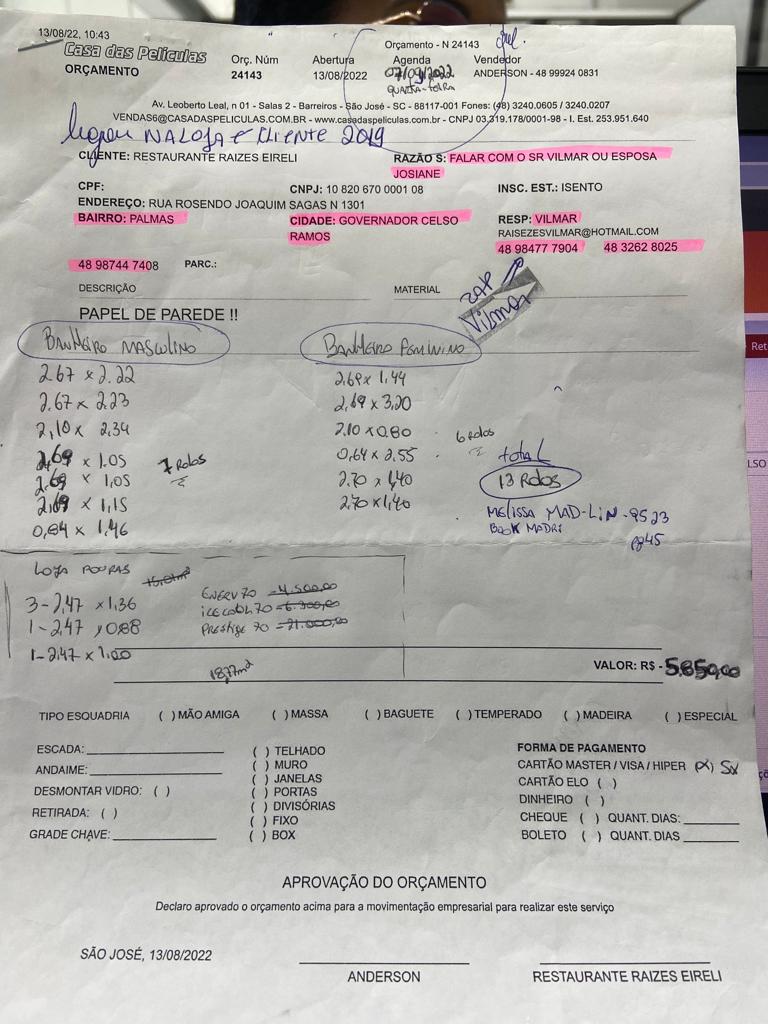 13/08/22, 10:43
Orçamento - N 24143
Casa das Películas
ORÇAMENTO
Orç. Núm
24143
Abertura
13/08/2022
Agenda
07/09/2022
QUARTA-FEIRA
Vendedor
ANDERSON - 48 99924 0831
Av. Leoberto Leal, n 01 - Salas 2 - Barreiros - São José - SC - 88117-001 Fones: (48) 3240.0605 / 3240.0207
VENDAS6@CASADASPELICULAS.COM.BR - www.casadaspeliculas.com.br - CNPJ 03.319.178/0001-98 - I. Est. 253.951.640
ligou NA LOJA e Cliente 2019
CLIENTE: RESTAURANTE RAIZES EIRELI
RAZÃO S: FALAR COM O SR VILMAR OU ESPOSA
JOSIANE
CPF:
CNPJ: 10 820 670 0001 08
INSC. EST.: ISENTO
ENDEREÇO: RUA ROSENDO JOAQUIM SAGAS N 1301
BAIRRO: PALMAS
CIDADE: GOVERNADOR CELSO
RAMOS
RESP: VILMAR
RAISEZESVILMAR@HOTMAIL.COM
48 98477 7904 48 3262 8025
48 98744 7408 PARC.:
DESCRIÇÃO
MATERIAL
ZAP
Vilmar
PAPEL DE PAREDE !!
BANHEIRO MASCULINO
2.67 x 2.22
2.67 x 2.23
2,10 x 2,34
2,69 x 1.05
2,69 x 1,05
2,69 x 1,15
0,84 x 1,46
7 Rolos
BANHEIRO FEMININO
2,69 x 1,44
2,69 x 3,20
2.10 x 0.80
0,64 x 2.55
2.70 x 1,40
2,70 x 1,40
6 Rolos
total
13 Rolos
MELISSA MAD-LIN-9523
BOOK MADRI
pg45
LOJA ROUPAS
3-2,47 x 1,36
1-2,47 x 0,88
1-2.47 x 1,00
ENERV 70 4.500,00
ICE COOL 70 6.300,00
PRESTIGE 70 21.000,00
18,77m²
VALOR: R$ - 5.850,00
TIPO ESQUADRIA ( ) MÃO AMIGA ( ) MASSA ( ) BAGUETE ( ) TEMPERADO ( ) MADEIRA ( ) ESPECIAL
ESCADA:
ANDAIME:
DESMONTAR VIDRO: ( )
RETIRADA: ( )
GRADE CHAVE:
( ) TELHADO
( ) MURO
( ) JANELAS
( ) PORTAS
( ) DIVISÓRIAS
( ) FIXO
( ) BOX
FORMA DE PAGAMENTO
CARTÃO MASTER / VISA / HIPER (X) 5x
CARTÃO ELO ( )
DINHEIRO ( )
CHEQUE ( ) QUANT. DIAS:
BOLETO ( ) QUANT. DIAS
APROVAÇÃO DO ORÇAMENTO
Declaro aprovado o orçamento acima para a movimentação empresarial para realizar este serviço
SÃO JOSÉ, 13/08/2022
ANDERSON
RESTAURANTE RAIZES EIRELI
Ret
LSO